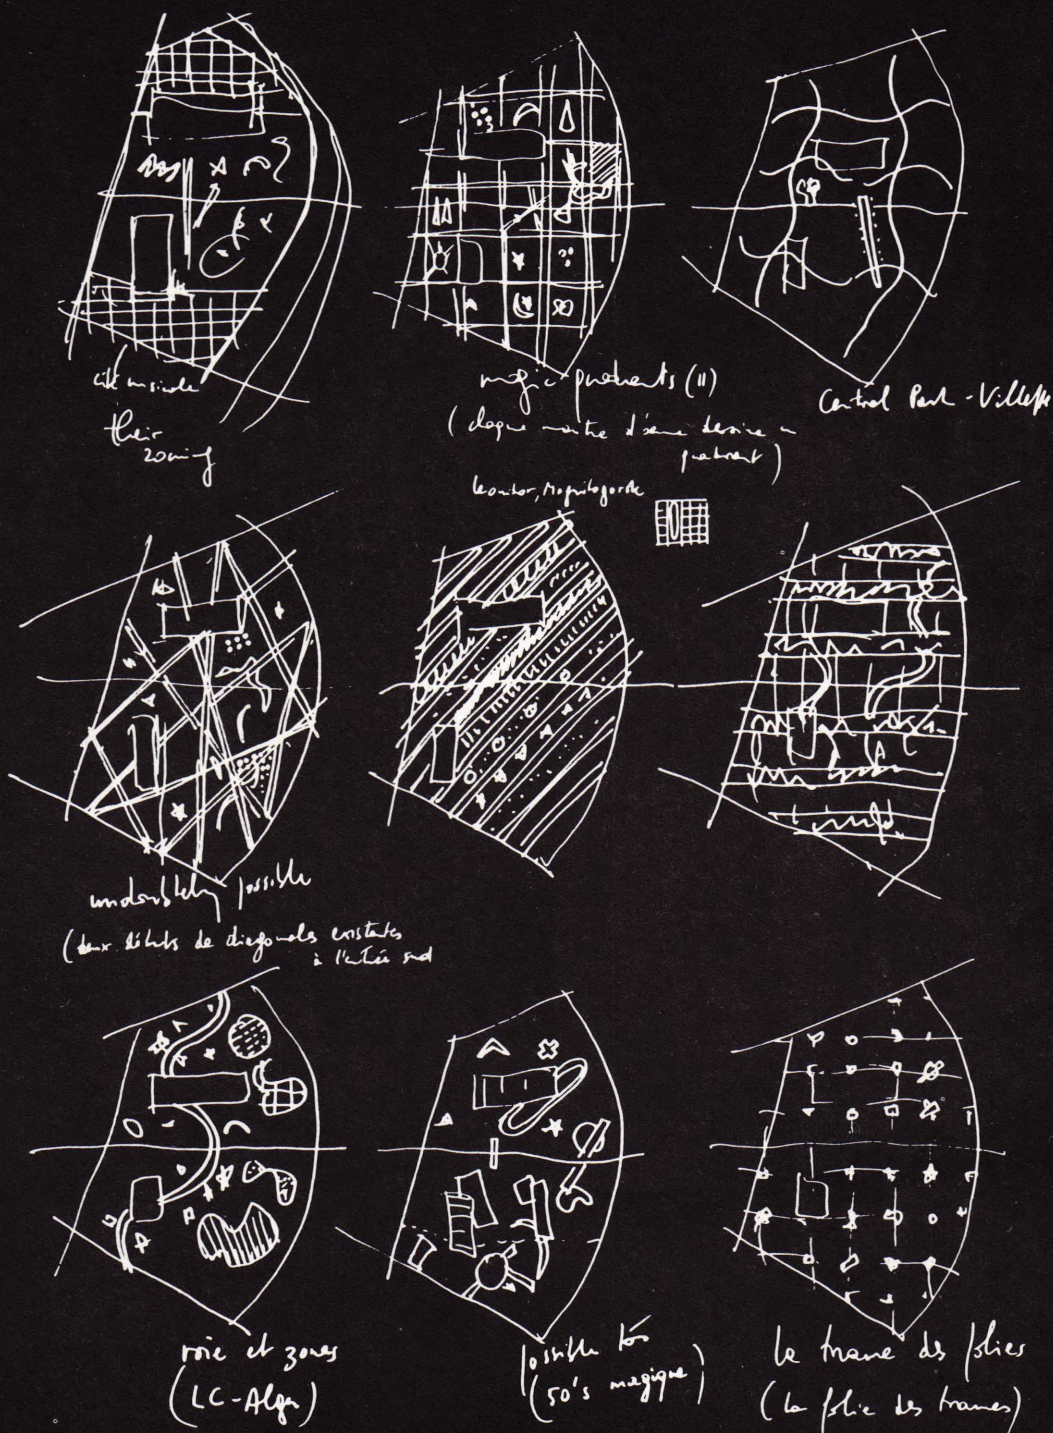 cité musicale
their
zoning
magic quadrants (II)
(chaque maître d'œuvre dessine un
quadrant)
Central Park - Villette
Leonidov, Magnitogorsk
undoubtedly possible
(deux débuts de diagonales existantes
à l'entrée sud
voie et zones
(LC-Alger)
possible too
(50's magique)
la trame des folies
(la folie des trames)